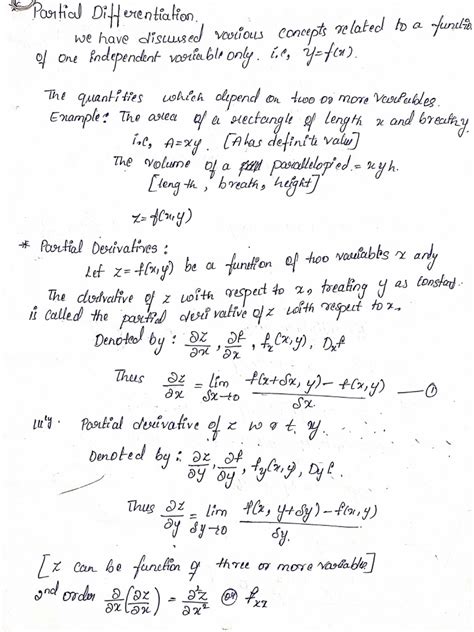 Partial Differentiation.
we have discussed various concepts related to a function
of one independent variable only. i.e, y=f(x).
The quantities which depend on two or more variables.
Example: The area of a rectangle of length x and breath y
i.e, A=xy. [A has definite value]
The volume of a parallelopied = xyh.
[length, breath, height]
z=f(x,y)
* Partial Derivatives:
Let z=f(x,y) be a function of two variables x and y
The derivative of z with respect to x, treating y as constant.
is called the partial derivative of z with respect to x.
Denoted by: ∂z/∂x, ∂f/∂x, fx(x,y), Dxf
Thus ∂z/∂x = lim δx→0 f(x+δx, y) - f(x,y) / δx. — ①
lll'y. Partial derivative of z w.r.t. y.
Denoted by: ∂z/∂y, ∂f/∂y, fy(x,y), Dyf.
Thus ∂z/∂y = lim δy→0 f(x, y+δy) - f(x,y) / δy.
[z can be function of three or more variable]
2nd order ∂/∂x(∂z/∂x) = ∂²z/∂x² (or) fxx